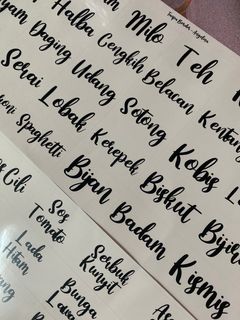 Milo
Teh
Halba
Cengkih
Belacan
Daging
Udang
Sotong
Kobis
Serai
Lobak
Kerepek
Biskut
Spaghetti
Bijan
Badam
Kismis
Cili
Sos
Tomato
Lada
Hitam
Serbuk
Kunyit
Bunga